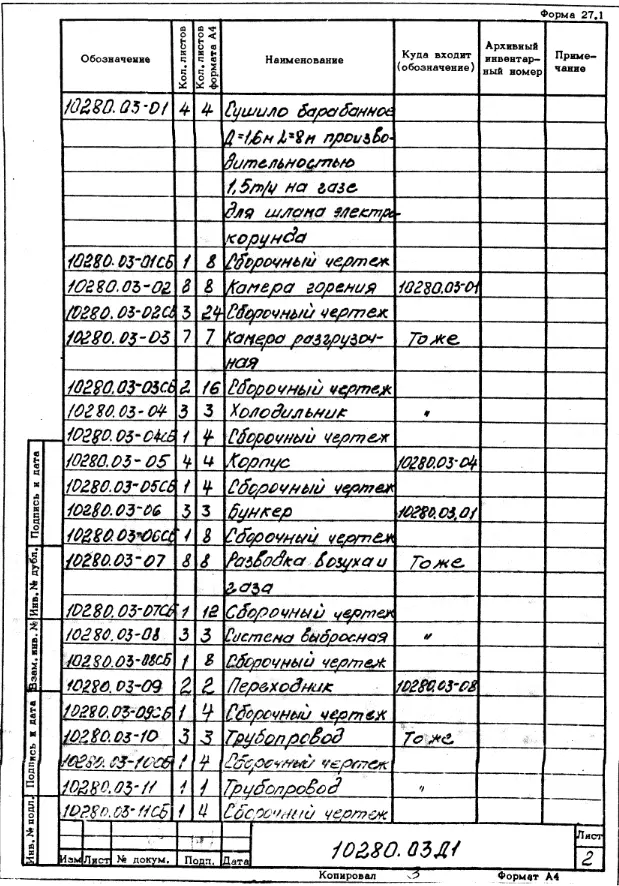 Форма 27.1
Обозначение Кол. листов Кол. листов формата А4 Наименование Куда входит (обозначение) Архивный инвентарный номер Примечание
10280.03-01 4 4 Сушило барабанное
Д=1,6м L=8м произво-
дительностью
1,5т/ч на газе
для шлама электро-
корунда
10280.03-01СБ 1 8 Сборочный чертеж
10280.03-02 8 8 Камера горения 10280.03-01
10280.03-02СБ 3 24 Сборочный чертеж
10280.03-03 7 7 Камера разгрузоч- То же
ная
10280.03-03СБ 2 16 Сборочный чертеж
10280.03-04 3 3 Холодильник "
10280.03-04СБ 1 4 Сборочный чертеж
10280.03-05 4 4 Корпус 10280.03-04
10280.03-05СБ 1 4 Сборочный чертеж
10280.03-06 3 3 Бункер 10280.03.01
10280.03-06СБ 1 8 Сборочный чертеж
10280.03-07 8 8 Разводка возуха и То же
газа
10280.03-07СБ 1 12 Сборочный чертеж
10280.03-08 3 3 Система выбросная "
10280.03-08СБ 1 8 Сборочный чертеж
10280.03-09 2 2 Переходник 10280.03-08
10280.03-09СБ 1 4 Сборочный чертеж
10280.03-10 3 3 Трубопровод То же
10280.03-10СБ 1 4 Сборочный чертеж
10280.03-11 1 1 Трубопровод "
10280.03-11СБ 1 4 Сборочный чертеж
Подпись и дата
Инв. № дубл.
Взам. инв. №
Подпись и дата
Инв. № подл.
Изм Лист № докум. Подп. Дата
10280.03Д1
Лист
2
Копировал З Формат А4